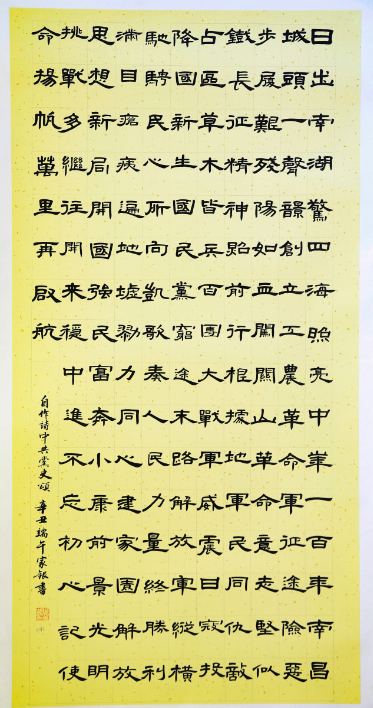 日出南湖驚四海照亮中華一百年南昌
城頭一聲韻創立工農革命軍征途險惡
步履艱殘陽如血闖關山革命意志堅似
鐵長征精神貽前行根據地軍民同仇敵
占區草木皆兵百團大戰軍威震日寇投
降國新生國民黨窮途末路解放軍縱橫
馳騁民心所向凱歌奏人民力量終勝利
滿目瘡痍遍地墟勠力同心建家園解放
思想新局開國強民富奔小康前景光明
挑戰多繼往開來穩中進不忘初心記使
命揚帆萬里再啟航
自作詩中共黨史頌 辛丑端午家銀書